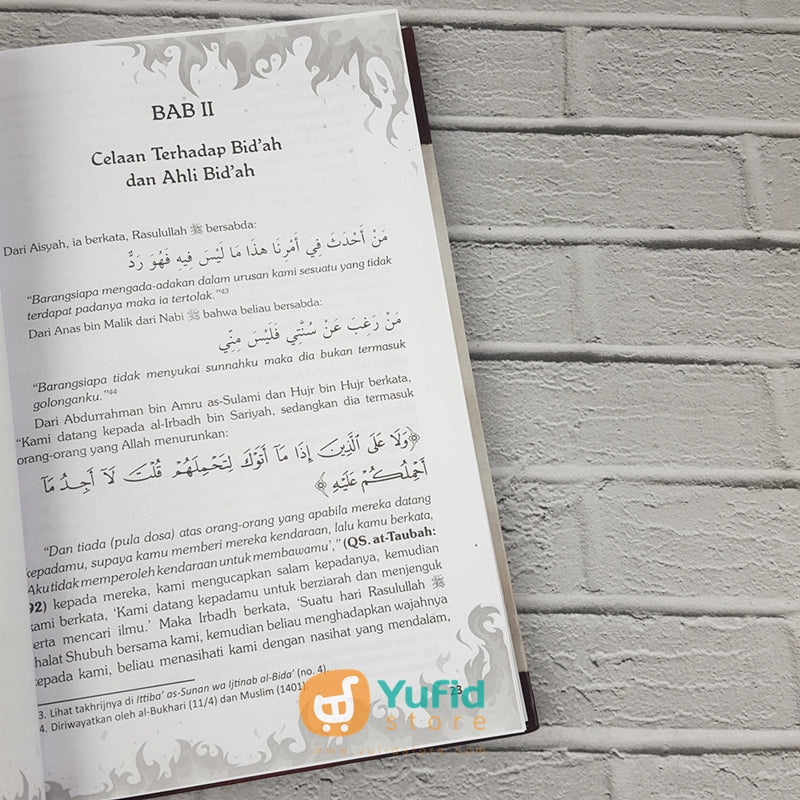 BAB II
Celaan Terhadap Bid'ah
dan Ahli Bid'ah
Dari Aisyah, ia berkata, Rasulullah ﷺ bersabda:
مَنْ أَحْدَثَ فِي أَمْرِنَا هٰذَا مَا لَيْسَ فِيهِ فَهُوَ رَدٌّ
"Barangsiapa mengada-adakan dalam urusan kami sesuatu yang tidak
terdapat padanya maka ia tertolak."43
Dari Anas bin Malik dari Nabi ﷺ bahwa beliau bersabda:
مَنْ رَغِبَ عَنْ سُنَّتِي فَلَيْسَ مِنِّي
"Barangsiapa tidak menyukai sunnahku maka dia bukan termasuk
golonganku."44
Dari Abdurrahman bin Amru as-Sulami dan Hujr bin Hujr berkata,
"Kami datang kepada al-Irbadh bin Sariyah, sedangkan dia termasuk
orang-orang yang Allah menurunkan:
﴿وَلَا عَلَى الَّذِينَ إِذَا مَآ أَتَوْكَ لِتَحْمِلَهُمْ قُلْتَ لَآ أَجِدُ مَآ
أَحْمِلُكُمْ عَلَيْهِ﴾
"Dan tiada (pula dosa) atas orang-orang yang apabila mereka datang
kepadamu, supaya kamu memberi mereka kendaraan, lalu kamu berkata,
'Aku tidak memperoleh kendaraan untuk membawamu'," (QS. at-Taubah:
92) kepada mereka, kami mengucapkan salam kepadanya, kemudian
kami berkata, 'Kami datang kepadamu untuk berziarah dan menjenguk
serta mencari ilmu.' Maka Irbadh berkata, 'Suatu hari Rasulullah ﷺ
shalat Shubuh bersama kami, kemudian beliau menghadapkan wajahnya
kepada kami, beliau menasihati kami dengan nasihat yang mendalam,
3. Lihat takhrijnya di Ittiba' as-Sunan wa Ijtinab al-Bida' (no. 4).
4. Diriwayatkan oleh al-Bukhari (11/4) dan Muslim (1401).
23
Yufid
store
www.yufidstore.com